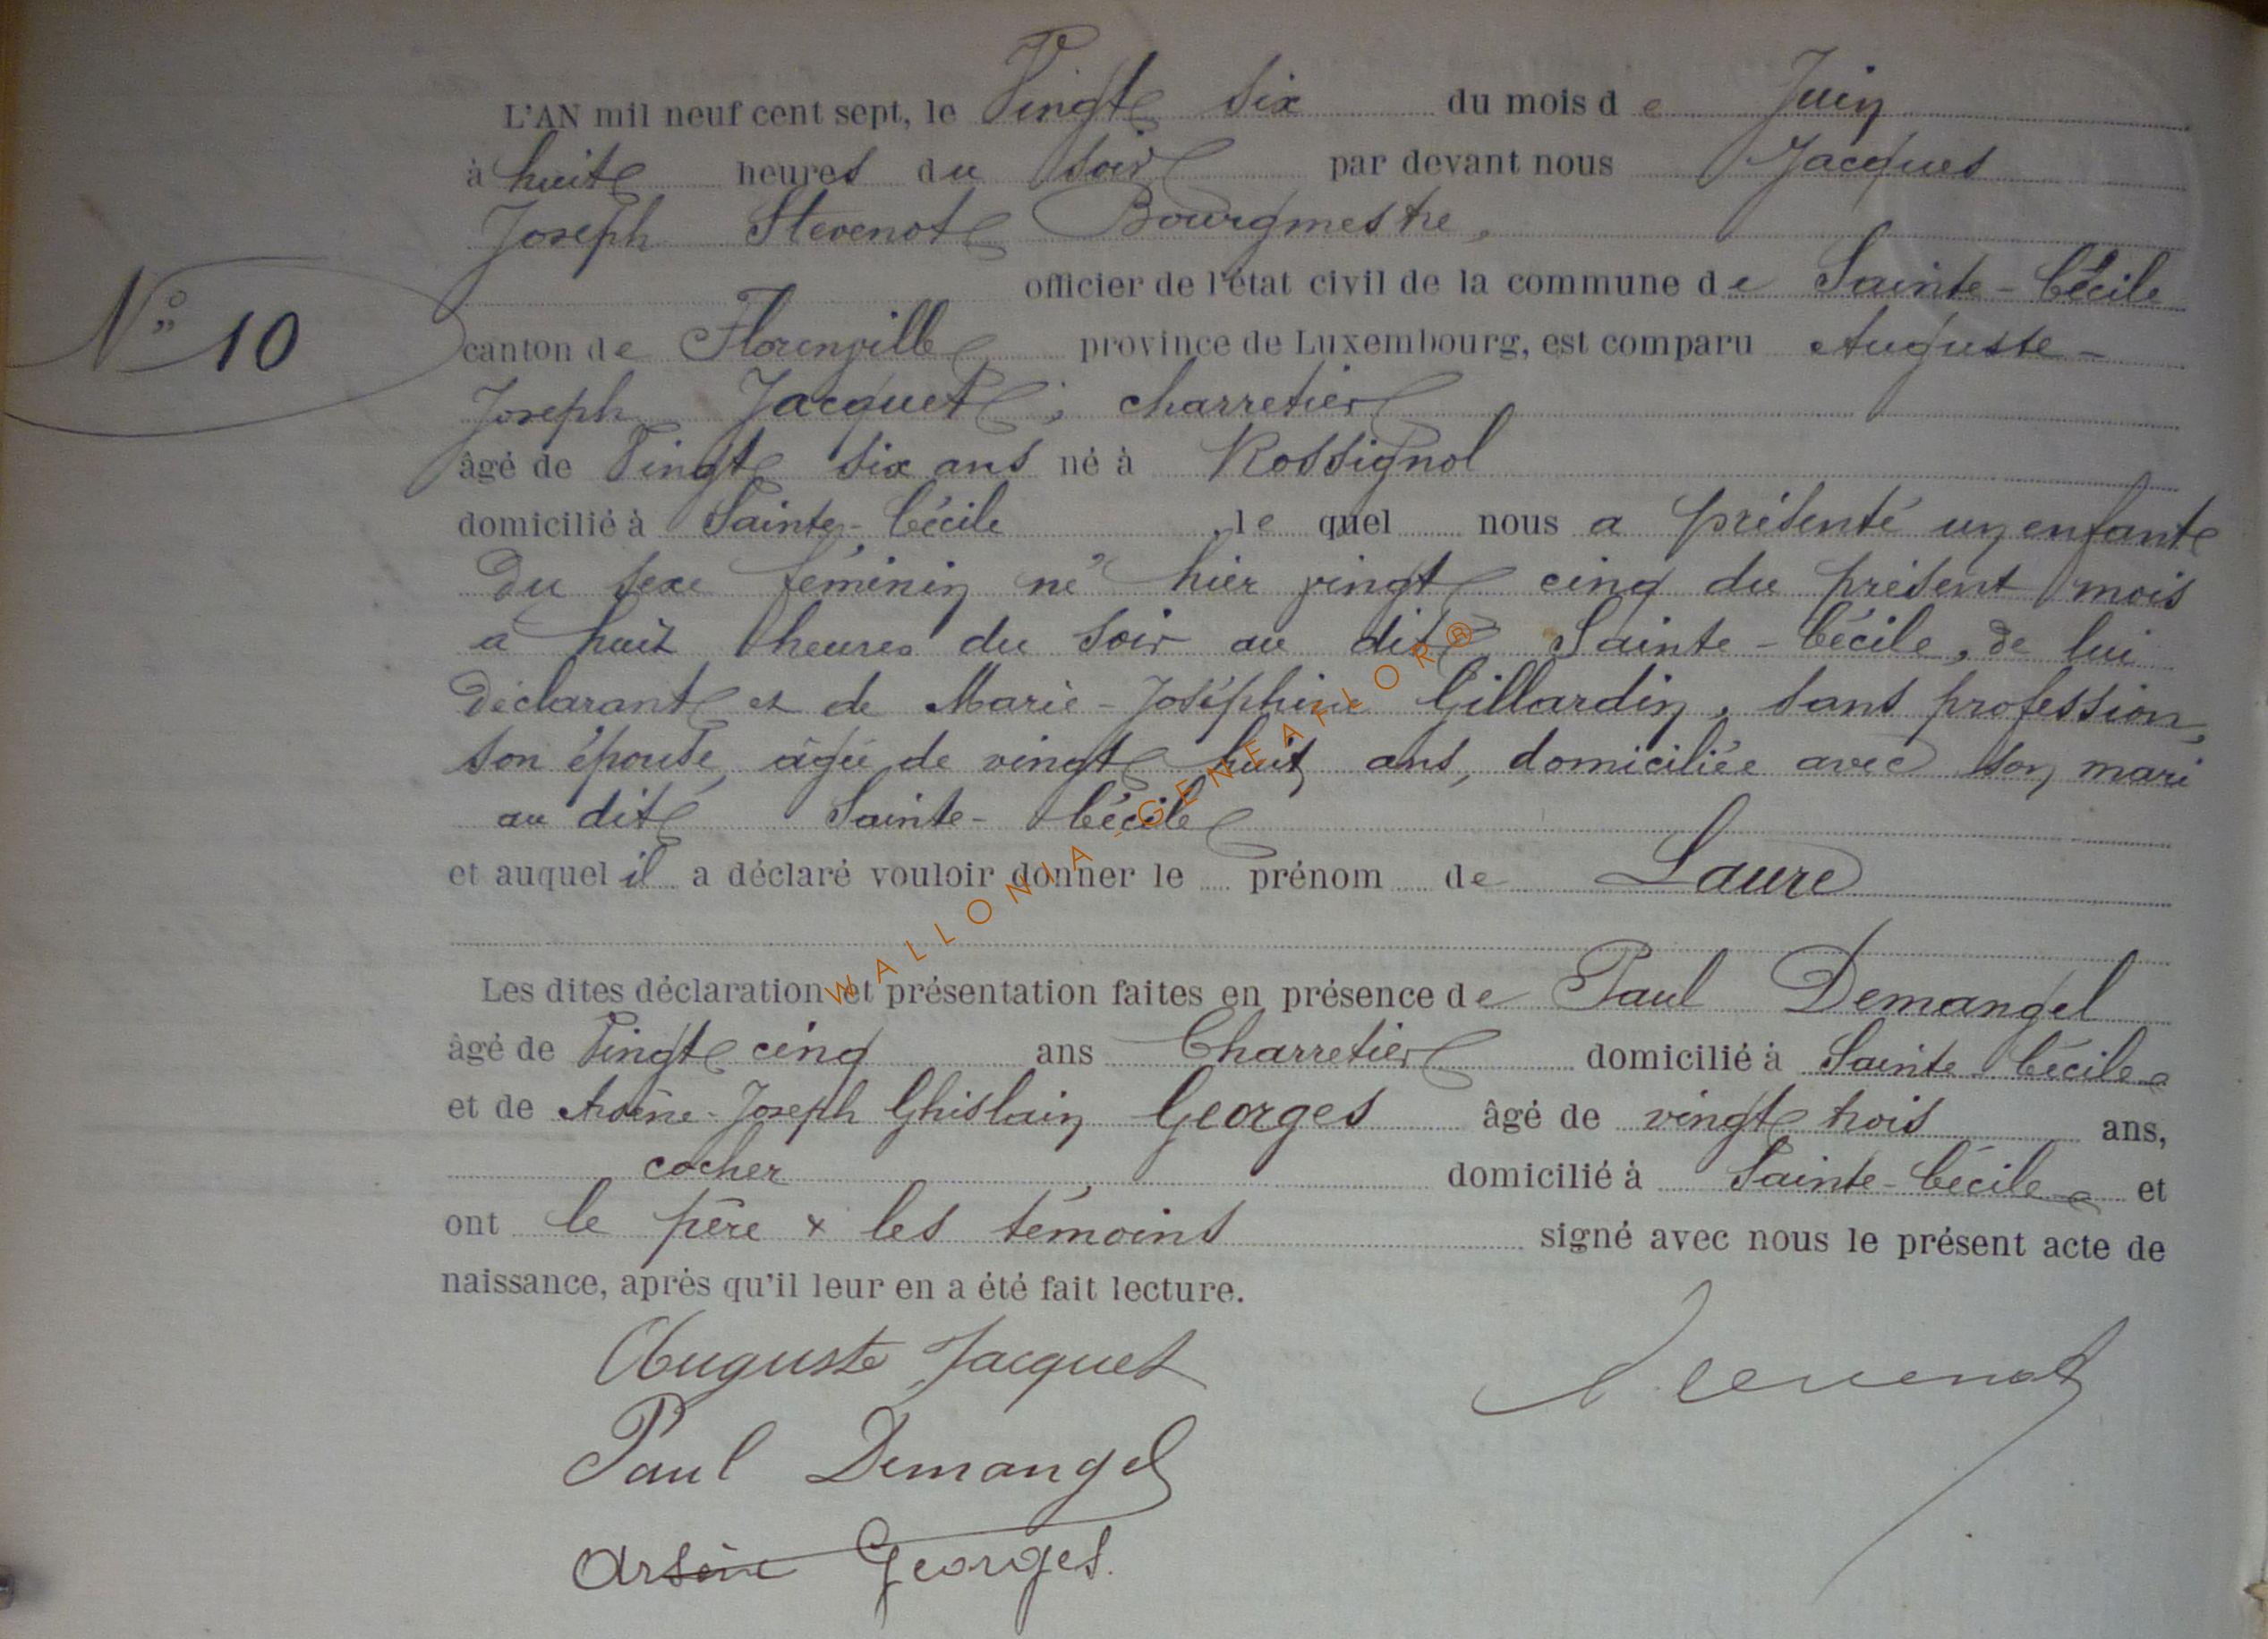 L'AN mil neuf cent sept, le Vingt six du mois de Juin
à huit heures du soir par devant nous Jacques
Joseph Stevenot Bourgmestre,
officier de l'état civil de la commune de Sainte-Cécile
N° 10
canton de Florenville province de Luxembourg, est comparu Auguste-
Joseph Jacquet, charretier
âgé de Vingt six ans né à Rossignol
domicilié à Sainte-Cécile, le quel nous a présenté un enfant
du sexe féminin né hier vingt cinq du présent mois
a huit heures du soir au dit Sainte-Cécile, de lui
déclarant et de Marie-Joséphine Gillardin, sans profession,
son épouse, âgée de vingt huit ans, domiciliée avec son mari
au dit Sainte-Cécile
et auquel il a déclaré vouloir donner le prénom de Laure
Les dites déclaration et présentation faites en présence de Paul Demangel
âgé de Vingt cinq ans Charretier domicilié à Sainte Cécile
et de Arsène-Joseph Ghislain Georges âgé de vingt trois ans,
cocher, domicilié à Sainte-Cécile et
ont le père & les témoins signé avec nous le présent acte de
naissance, après qu'il leur en a été fait lecture.
Auguste Jacquet
Stevenot
Paul Demangel
Arsène Georges.
WALLONIA-GENEAFLOR®